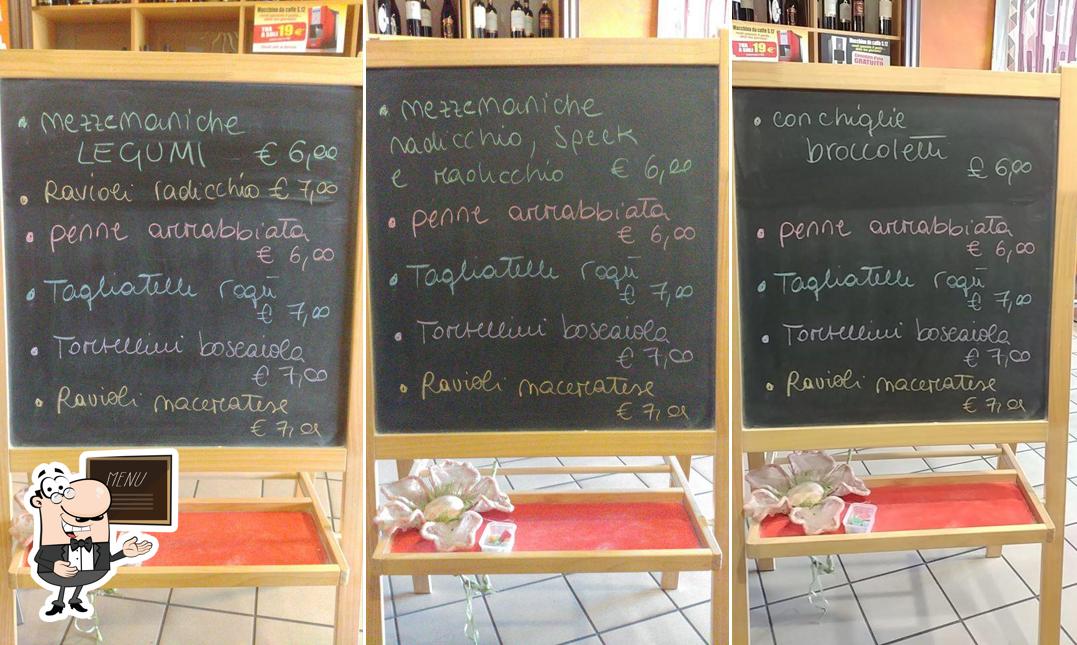 Macchina da caffè S.12
TUA A SOLI 19€
• mezzemaniche
LEGUMI € 6,00
• Ravioli radicchio € 7,00
• penne arrabbiata
€ 6,00
• Tagliatelle ragù
€ 7,00
• Tortellini boscaiola
€ 7,00
• Ravioli maceratese
€ 7,00
MENU
• mezzemaniche
radicchio, speck
e radicchio € 6,00
• penne arrabbiata
€ 6,00
• Tagliatelle ragù
€ 7,00
• Tortellini boscaiola
€ 7,00
• Ravioli maceratese
€ 7,00
Macchina da caffè S.12
19€
Macchina da caffè S.12
GRATUITO
• conchiglie
broccoletti
€ 6,00
• penne arrabbiata
€ 6,00
• Tagliatelle ragù
€ 7,00
• Tortellini boscaiola
€ 7,00
• Ravioli maceratese
€ 7,00